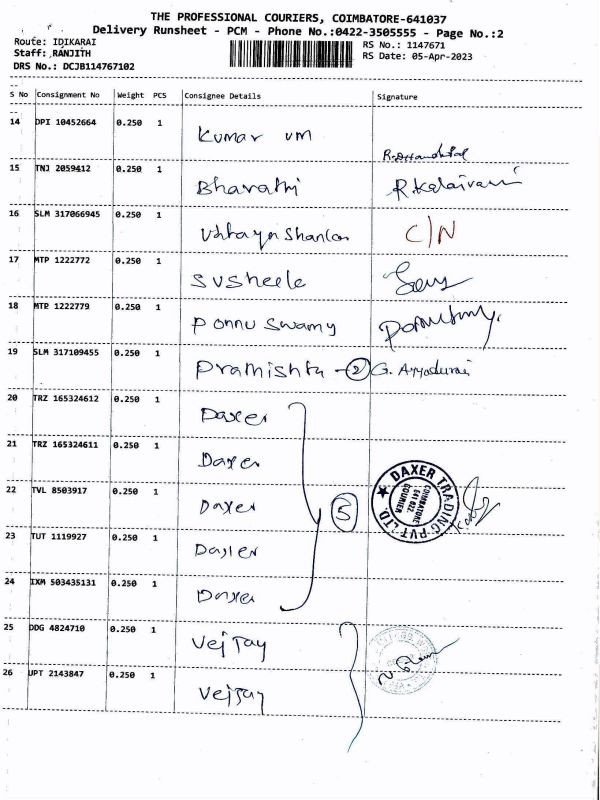 THE PROFESSIONAL COURIERS, COIMBATORE-641037
Delivery Runsheet - PCM - Phone No.:0422-3505555 - Page No.:2
Route: IDIKARAI
RS No.: 1147671
Staff: RANJITH
RS Date: 05-Apr-2023
DRS No.: DCJB114767102
S No Consignment No Weight PCS Consignee Details Signature
14 DPI 10452664 0.250 1 Kumar VM
15 TNJ 2059412 0.250 1 Bharathi R. Kalaivani
16 SLM 317066945 0.250 1 C/N
17 MTP 1222772 0.250 1 Susheele
18 MTP 1222779 0.250 1 Ponnu Swamy
19 SLM 317109455 0.250 1 Pramishta - 2 G. Ayyadurai
20 TRZ 165324612 0.250 1 Daxer
21 TRZ 165324611 0.250 1 Daxer
22 TVL 8503917 0.250 1 Daxer 5
DAXER TRADING PVT LTD.
COURIER
641 022.
COIMBATORE
23 TUT 1119927 0.250 1 Daxer
24 IXM 503435131 0.250 1 Daxer
25 DDG 4824710 0.250 1 Vejjay
26 UPT 2143847 0.250 1 Vejjay